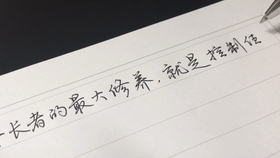 长者的最大修养，就是控制住